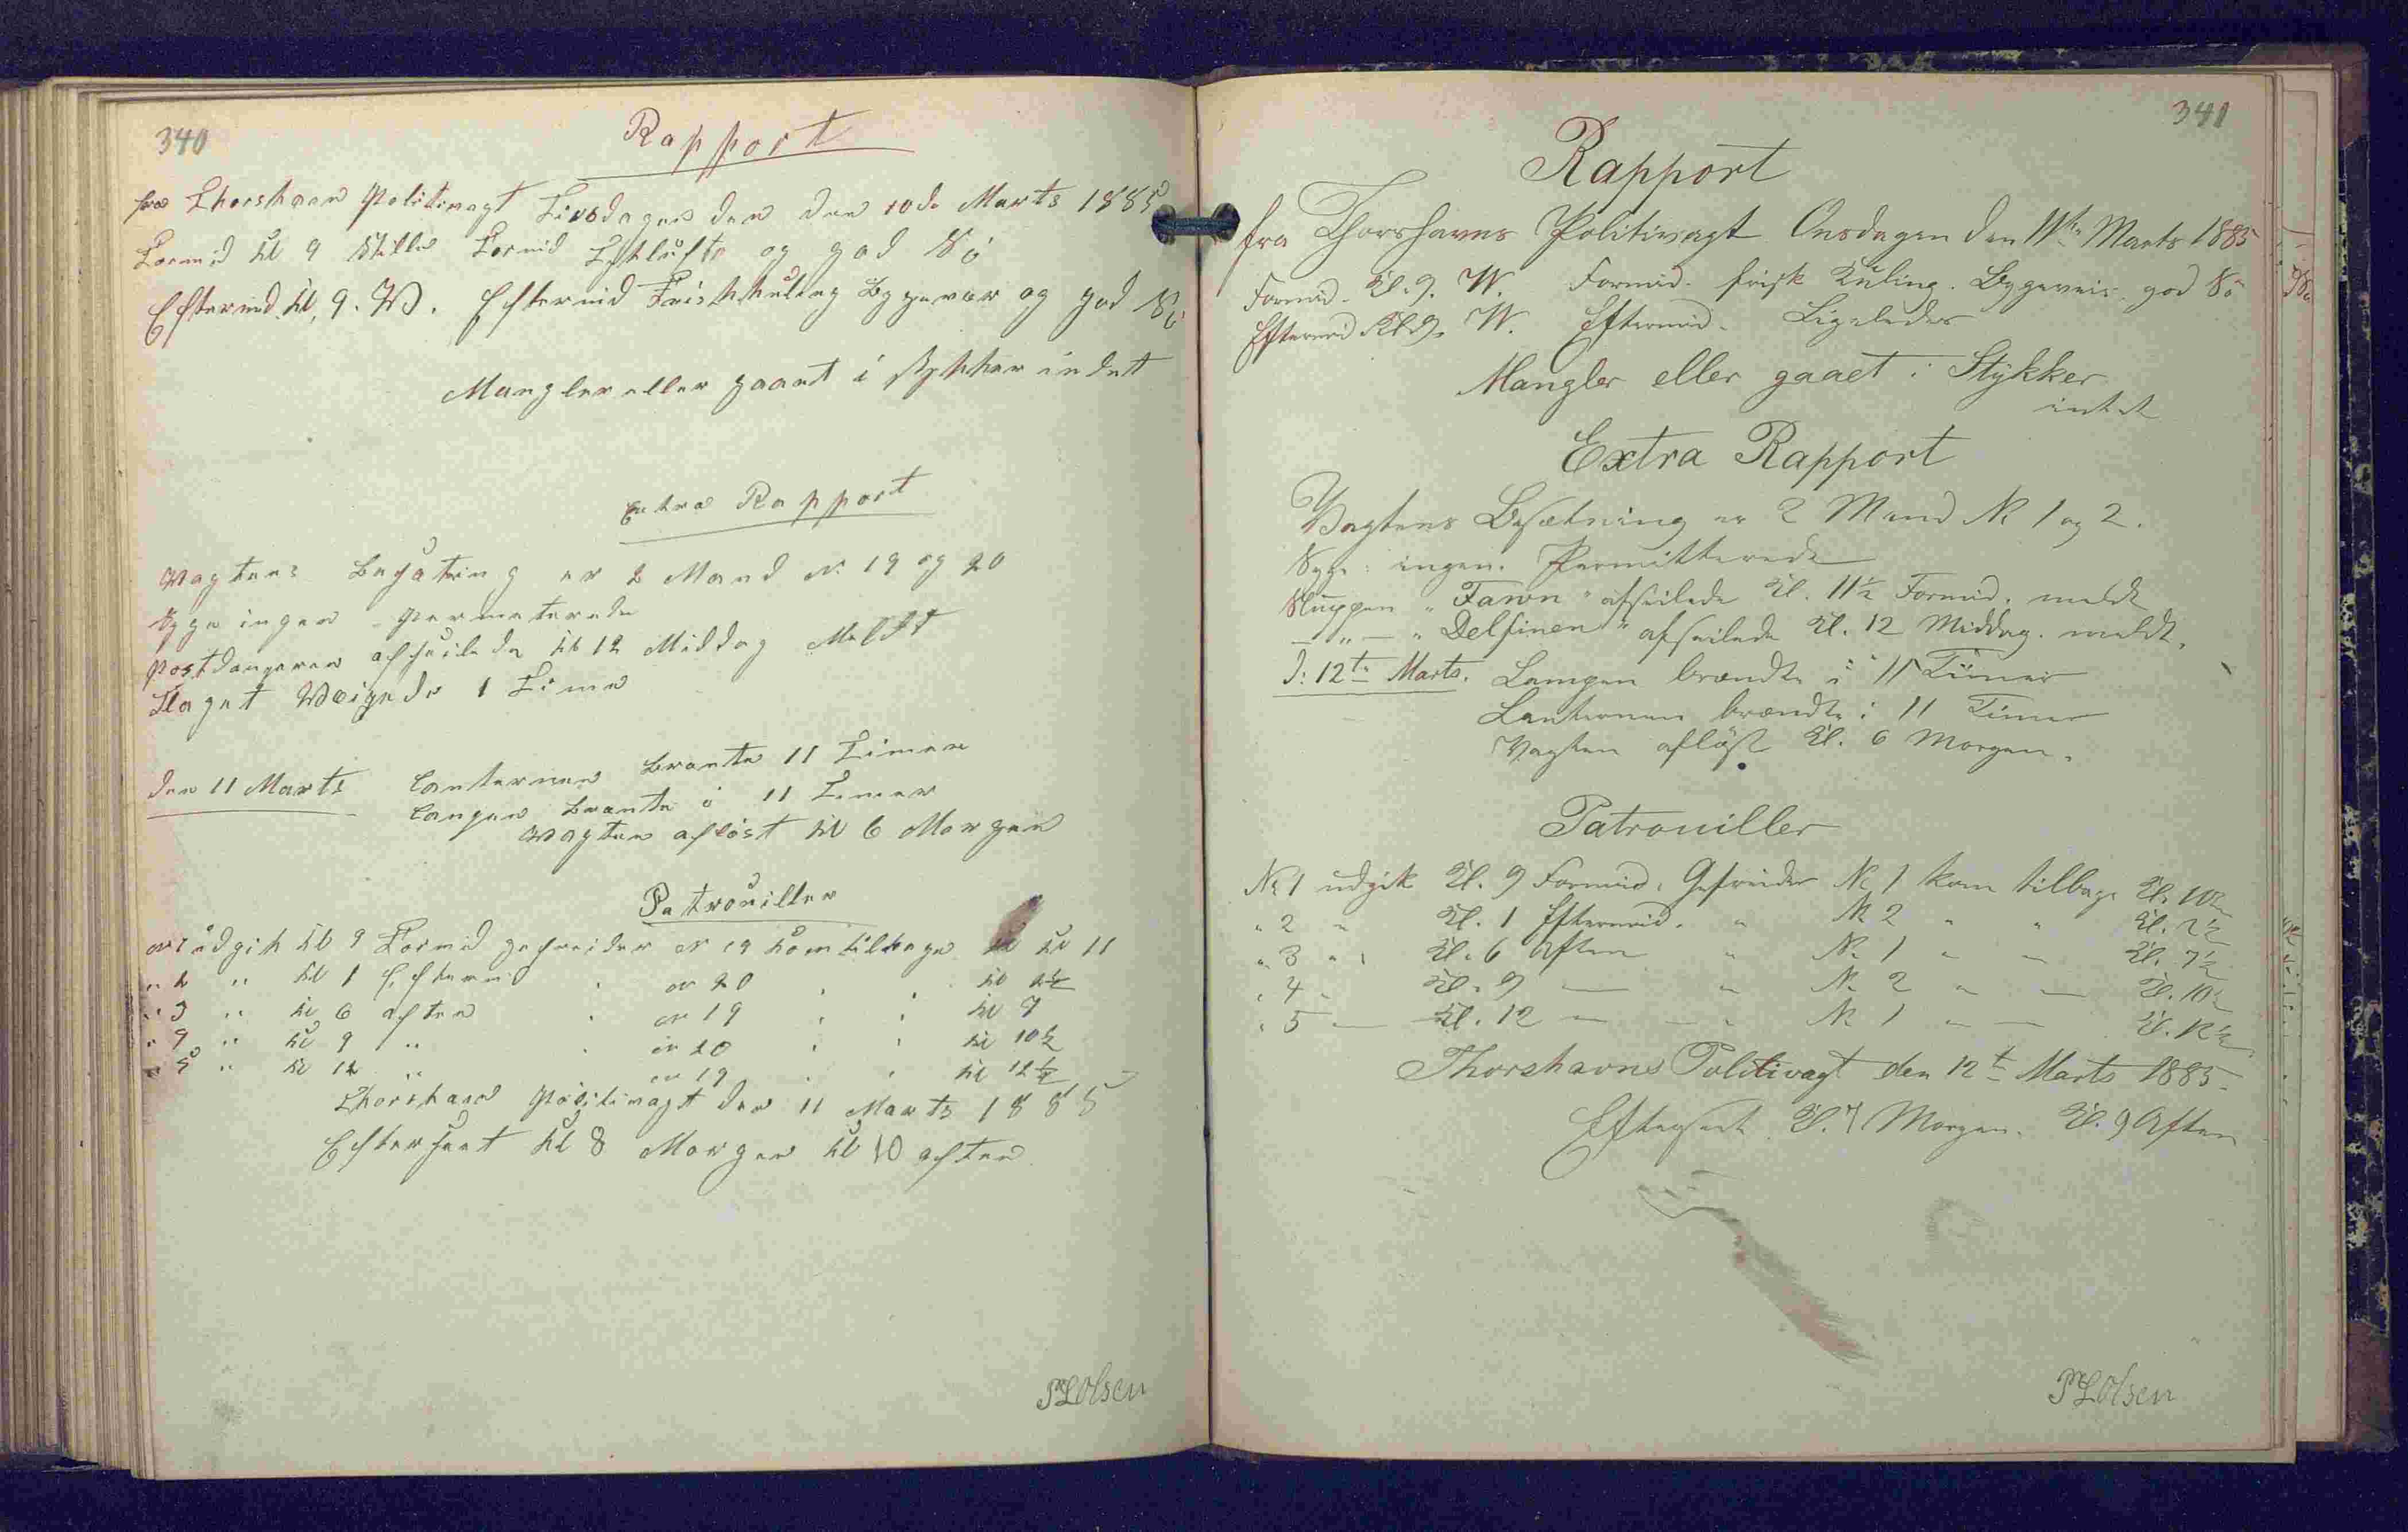 340
Rapport
fra Thorshavn Politivagt Tirsdagen den den 10de Marts 1885
Formid Kl 9 Stille Formid Letluft og god Sö
Eftermid Kl, 9. W. Eftermid Friskkuling Bygevær og god Sö
Mangler eller gaaet i stykker indet
Extra Rapport
Vagtens Besating er 2 Mand N. 19 og 20
Syge ingen Permeterede
Postdamperen afseilede Kl 12 Middag Meldt
Flaget Weigede 1 Time
den 11 Marts Lanternen brante 11 Timer
Lampen brante i 11 Timer
Vagten aflöst Kl 6 Morgen
Patrouiller
N 1 udgik Kl 9 Formid gefreider N 19 kom tilbage Kl 11
" 2 " Kl 1 Eftermi " N 20 " " Kl 2½
" 3 " Kl 6 aften " N 19 " " Kl 7
" 4 " Kl 9 " " N 20 " " Kl 10½
" 5 " Kl 12 " N 19 " " Kl 12½
Thorshavn Politivagt den 11 Marts 1885
Efterseet Kl 8 Morgen Kl 10 aften
Olsen
341
Rapport
fra Thorshavns Politivagt Onsdagen den 11te Marts 1885
Formid. Kl. 9. W. Formid. frisk Kuling. Bygeveir. god Sö
Eftermid Kl. 9. W. Eftermid. Ligeledes
Mangler eller gaaet i Stykker
intet
Extra Rapport
Vagtens Besætning er 2 Mand N. 1 og 2.
Syge: ingen. Permitterede
Sluppen "Fawn" afseilede Kl. 11½ Formid. meldt
— " — "Delfinen" afseilede Kl. 12 Middag. meldt.
d: 12te Marts. Lampen brændte i 11 Timer
Lanternen brændte i 11 Timer
Vagten aflöst Kl. 6 Morgen.
Patrouiller
N. 1 udgik Kl. 9 Formid. Gefreider N. 1 kom tilbage Kl. 10½
" 2 " Kl. 1 Eftermid. " N. 2 " " Kl. 2½
" 3 " Kl. 6 Aften " N. 1 " " Kl. 7½
" 4 " Kl. 9 — " N. 2 " — Kl. 10½
" 5 — Kl. 12 — " N. 1 " — Kl. 12½
Thorshavns Politivagt den 12te Marts 1885.
Efterseet Kl. 7 Morgen. Kl. 9 Aften
Olsen